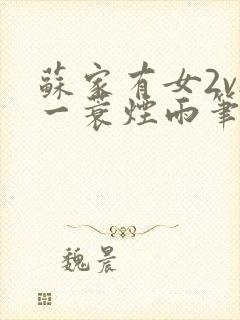 蘇家有女2v
一蓑煙雨筆
魏晨